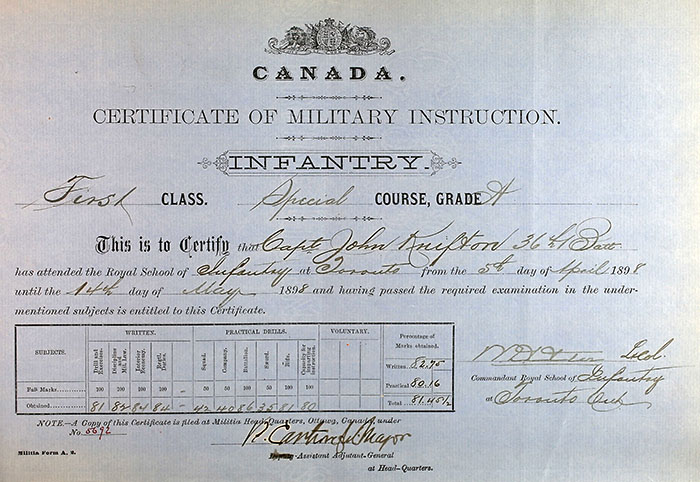 CANADA.
CERTIFICATE OF MILITARY INSTRUCTION.
INFANTRY.
First CLASS. Special COURSE, GRADE A
This is to Certify that Capt John Knifton 36th Batt
has attended the Royal School of Infantry at Toronto from the 5th day of April 1898
until the 14th day of May 1898 and having passed the required examination in the under-
mentioned subjects is entitled to this Certificate.
SUBJECTS. WRITTEN. PRACTICAL DRILLS. VOLUNTARY. Percentage of Marks obtained.
Drill and Exercises. Discipline and Mil. Law. Interior Economy. Regtl. Duties. Squad. Company. Battalion. Sword. Rifle. Capacity for Imparting Instruction.
Written 82.75
Full Marks 100 100 100 100 — 50 50 100 50 100 100 Practical 80.16
Obtained 81 82 84 84 — 42 40 86 35 81 80 Total 81.45½
Commandant Royal School of Infantry
at Toronto Ont
NOTE.—A Copy of this Certificate is filed at Militia Head Quarters, Ottawa, Canada, under
No. 5692
Major
Assistant Adjutant-General
at Head-Quarters.
Militia Form A. 2.